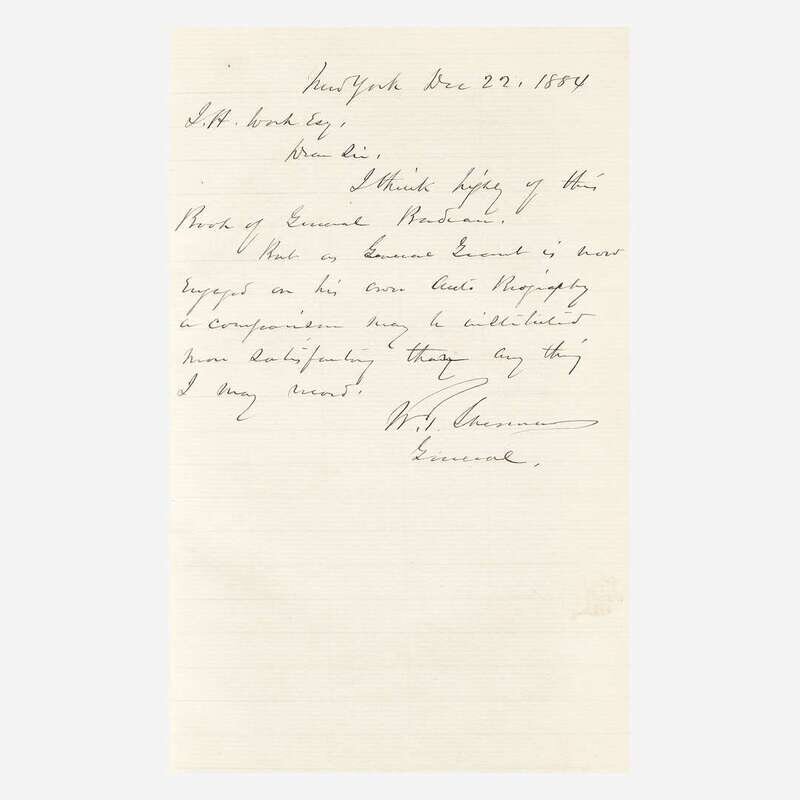 New York Dec 22, 1884
J. H. Work Esq,
Dear Sir,
I think highly of this
Book of General Badeau.
But as General Grant is now
Engaged on his own Auto Biography
a comparison may be instituted
more satisfactory than any thing
I may record.
W. T. Sherman
General,